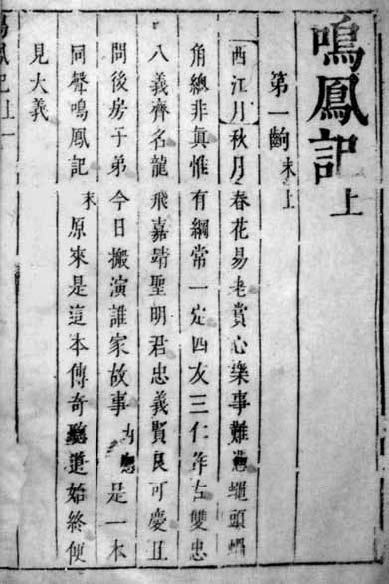 鳴鳳記 上
第一齣 末上
西江月 秋月春花易老賞心樂事難憑蠅頭蝸
角總非眞惟有綱常一定四友三仁作古雙忠
八義齊名龍飛嘉靖聖明君忠義賢良可慶且
問後房子弟今日搬演誰家故事 内應 是一本
同聲鳴鳳記 末 原來是這本傳奇聽道始終便
見大義
鳴鳳記上一